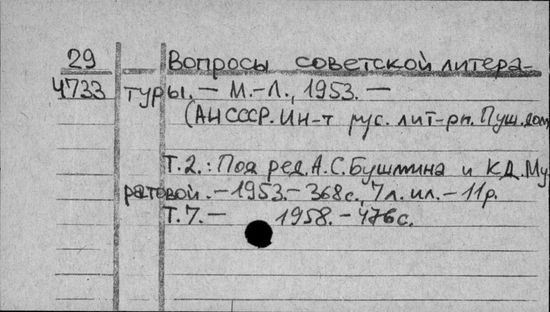 29 Вопросы советской литера-
4733 туры. — М.-Л., 1953. —
(АН СССР. Ин-т рус. лит-ры. Пуш. дом
Т.2.: Под ред. А.С. Бушмина и К.Д. Му
ратовой. — 1953. — 368с., 7л. ил. — 11р.
Т.7. — 1958. — 476с.